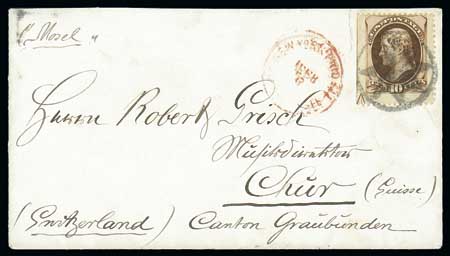 "Mosel"
NEW YORK PAID ALL
10
Herrn Robert Grisch
Musikdirektor
Chur (Suisse)
(Switzerland) Canton Graubünden